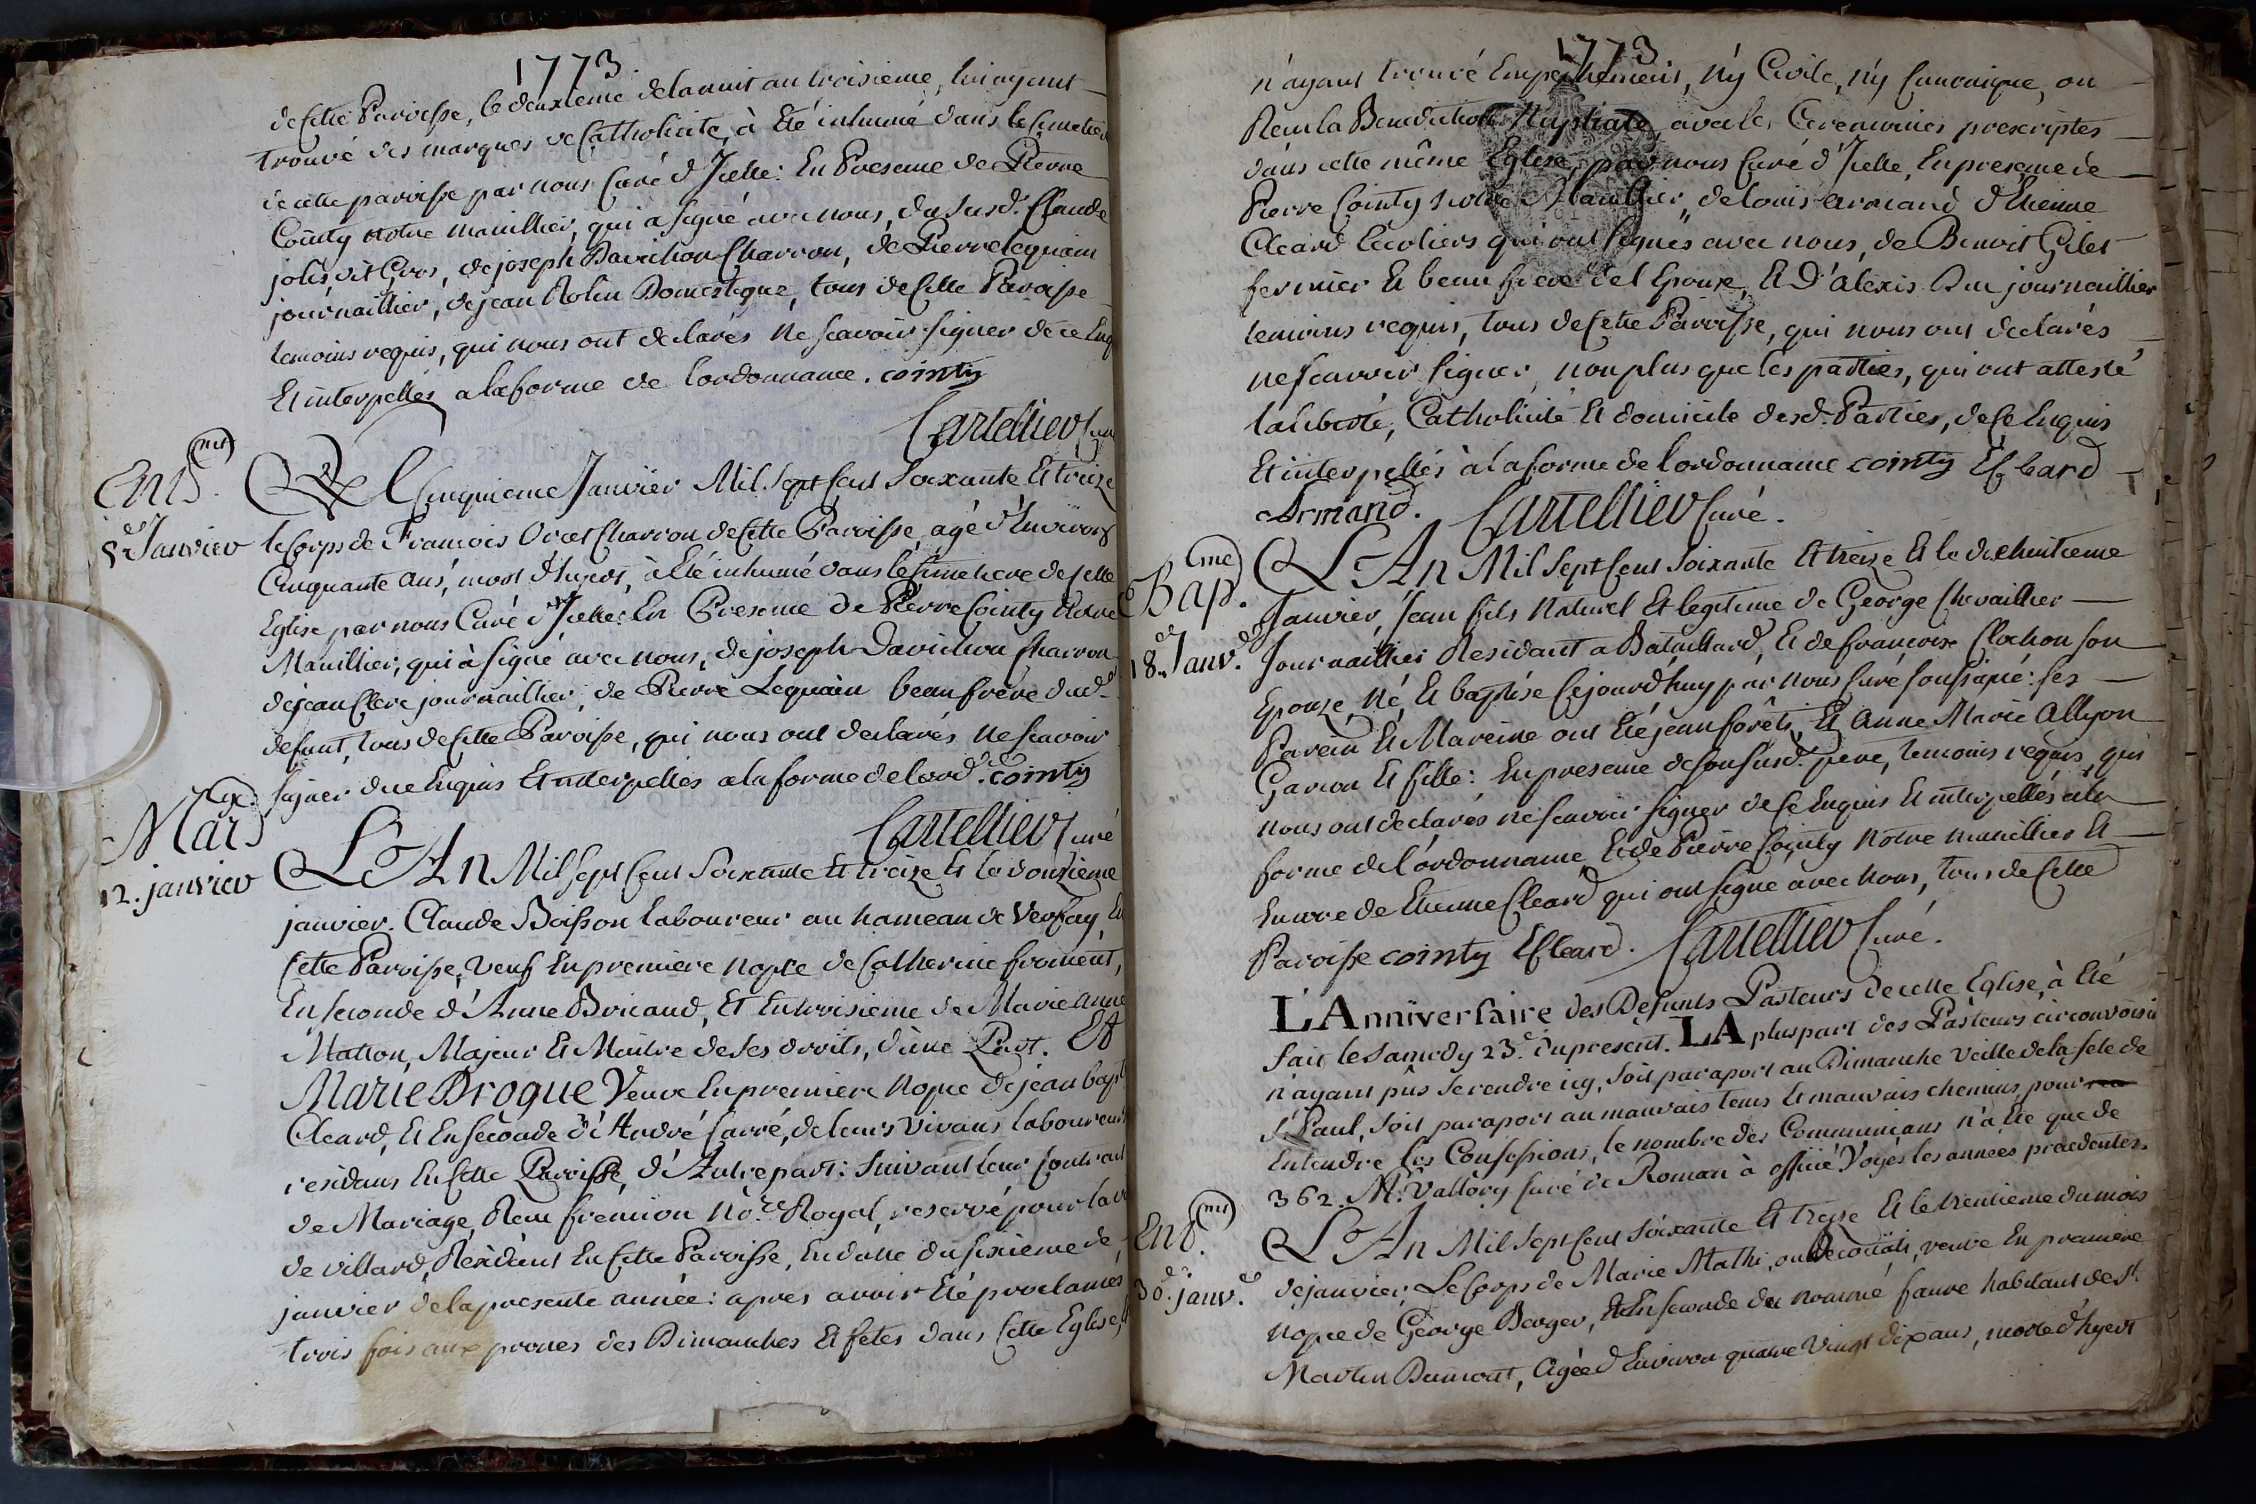 1773
de cette Paroisse, le deuxieme de la nuit au troisieme, lui ayant
trouvé des marques de Catholicité, à Eté inhumé dans le Cimetiere
de cette paroisse par nous Curé d'Icelle: En Presence de Pierre
Cointy notre manillier, qui a signé avec nous, du susd. Claude
joly dit Gros, de joseph Davichon Charron, de Pierre lequain
journaillier, de jean Rolin Domestique, tous de Cette Paroisse
temoins requis, qui nous ont declarés ne scavoir signer de ce Enq
Et interpellés a la forme de l'ordonnance. cointy
Cartellier Curé
Ent. mt
5e Janvier
Le Cinquieme Janvier Mil Sept Cent Soixante Et treize
le Corps de Francois Charron de Cette Paroisse, agé d'Environ
Cinquante ans, mort d'hyert, à Eté inhumé dans le Cimetiere de Cette
Eglise par nous Curé d'Icelle: En Presence de Pierre Cointy Notre
Manillier, qui à signé avec nous, de joseph Davichon Charron
de jean Clere journaillier, de Pierre Lequain beaufrere dud.
defunt, tous de Cette Paroisse, qui nous ont declarés ne scavoir
signer de ce Enquis Et interpellés a la forme de l'ord. cointy
Cartellier Curé
Mar. ge
12. janvier
L'An Mil Sept Cent Soixante Et treize Et le douzieme
janvier. Claude Boisson laboureur au hameau de Versay, En
Cette Paroisse, Veuf En premiere nopce de Catherine froment,
En seconde d'Anne Bricaud, Et En troisieme de Marie Anne
Matton, Majeur Et Maitre de ses droits, d'une Part. Et
Marie Drogue Veuve En premiere Nopce de jean bapt
Cleard, Et En seconde d'André Carré, de leurs Vivans laboureurs
residans En Cette Paroisse, d'Autre part: Suivant leur Contract
de Mariage, Recu fremion No.re Royal, reservé pour la
de Villard, Residant En Cette Paroisse, En datte du sixieme de
janvier de la presente année: apres avoir Eté proclamés
trois fois aux prones des Dimanches Et fetes dans Cette Eglise,
1773
n'ayant trouvé Empechement, ny Civile, ny Canonique, on
Recu la Benediction Nuptiale, avec les Ceremonies prescriptes
dans cette même Eglise, par nous Curé d'Icelle, En presence de
Pierre Cointy notre Manillier, de louis armand d'Etienne
Cleard Ecoliers qui ont signés avec nous, de Benoit Gilet
fermier Et beau frere de l'Epouse, Et D'alexis Duc journaillier
temoins requis, tous de Cette Paroisse, qui nous ont declarés
ne scavoir signer, non plus que les parties, qui ont attesté
la liberté, Catholicité Et domicile desd. Parties, de ce Enquis
Et interpellés à la forme de l'ordonnance cointy
Armand. Cartellier Curé.
Bap. me
18.e Janv.
L'An Mil Sept Cent Soixante Et treize Et le dixhuitieme
Janvier, Jean fils Naturel Et legitime de George Chevaillier
Journaillier Residant a Bataillard, Et de francoise Clochon son
Epouze, Né, Et baptisé Cejourd'huy par nous Curé soussigné: ses
Parein Et Mareine ont Eté jean forêts, Et Anne Marie Allyon
Garcon Et fille: En presence de son susd. pere, temoins requis, qui
nous ont declarés ne scavoir signer de ce Enquis Et interpellés à la
forme de l'ordonnance, Et de Pierre Cointy notre manillier Et
Encore de Etienne Cleard qui ont signé avec nous, tous de Cette
Paroisse cointy E Cleard. Cartellier Curé.
L'Anniversaire des Defunts Pasteurs de cette Eglise, à Eté
fait le samedy 23.e du present. LA pluspart des Pasteurs circonvoisin
n'ayant pûs se rendre icy, soit paraport au Dimanche Veille de la fete de
S. Paul, soit paraport au mauvais tems Et mauvais chemins, pour
Entendre les Confessions, le nombre des Communians n'a Eté que de
362. Mr. Vallory Curé de Roman à officié Voyés les années precedentes.
Ent. mt
30.e janv.
L'An Mil Sept Cent Soixante Et treize Et le trentieme du mois
de janvier, Le Corps de Marie Mathi, ou veuve En premiere
nopce de George Berger, Et En seconde du nommé faure habitant de St.
Martin Dumont, Agée d'Environ quatre Vingt dix ans, morte d'hyert